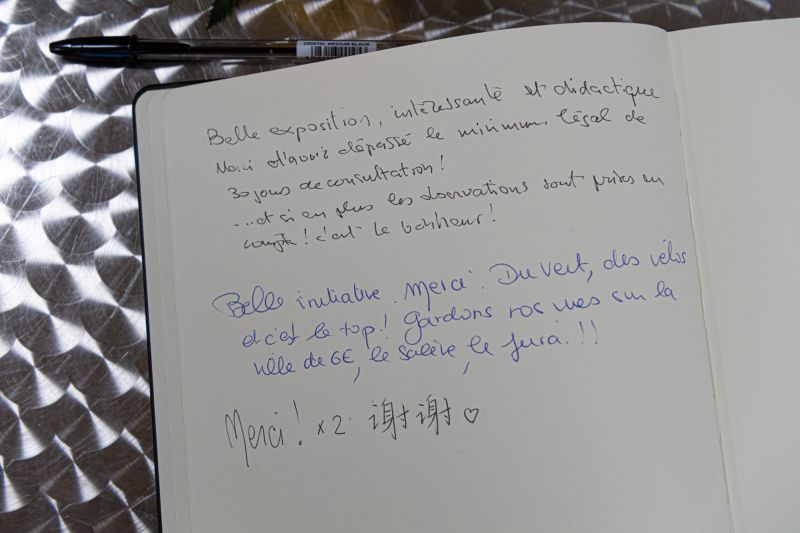 CRISTAL MEDIUM BLACK
Belle exposition, intéressante et didactique
Merci d'avoir dépassé le minimum légal de
30 jours de consultation !
...et si en plus les observations sont prises en
compte ! c'est le bonheur !
Belle initiative. Merci. Du vert, des vélos
et c'est le top ! Gardons nos vues sur la
ville de GE, le salève, le jura. !!
Merci ! x 2. 谢谢 ♡